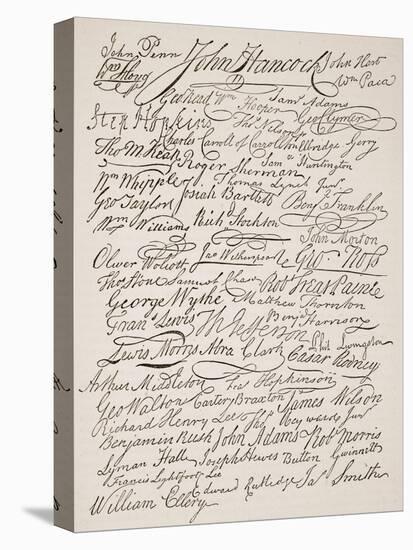 John Penn John Hancock John Hart
Wm Floyd Wm Paca
Geo Read Wm Hooper Saml Adams
Step Hopkins Thos Nelson Jr Geo Clymer
Charles Carroll of Carrollton Elbridge Gerry
Tho M:Kean Roger Sherman Saml Huntington
Wm Whipple Thomas Lynch Junr
Geo Taylor Josiah Bartlett Benj Franklin
Wm Williams Richd Stockton John Morton
Oliver Wolcott Jno Witherspoon Geo. Ross
Thos Stone Samuel Chase Robt Treat Paine
George Wythe Matthew Thornton
Frans Lewis Th Jefferson Benj Harrison
Lewis Morris Abra Clark Phil. Livingston
Casar Rodney
Arthur Middleton Fras Hopkinson
Geo Walton Carter Braxton James Wilson
Richard Henry Lee Thos Heyward Junr
Benjamin Rush John Adams Robt Morris
Lyman Hall Joseph Hewes Button Gwinnett
Francis Lightfoot Lee
William Ellery Edward Rutledge Jas Smith